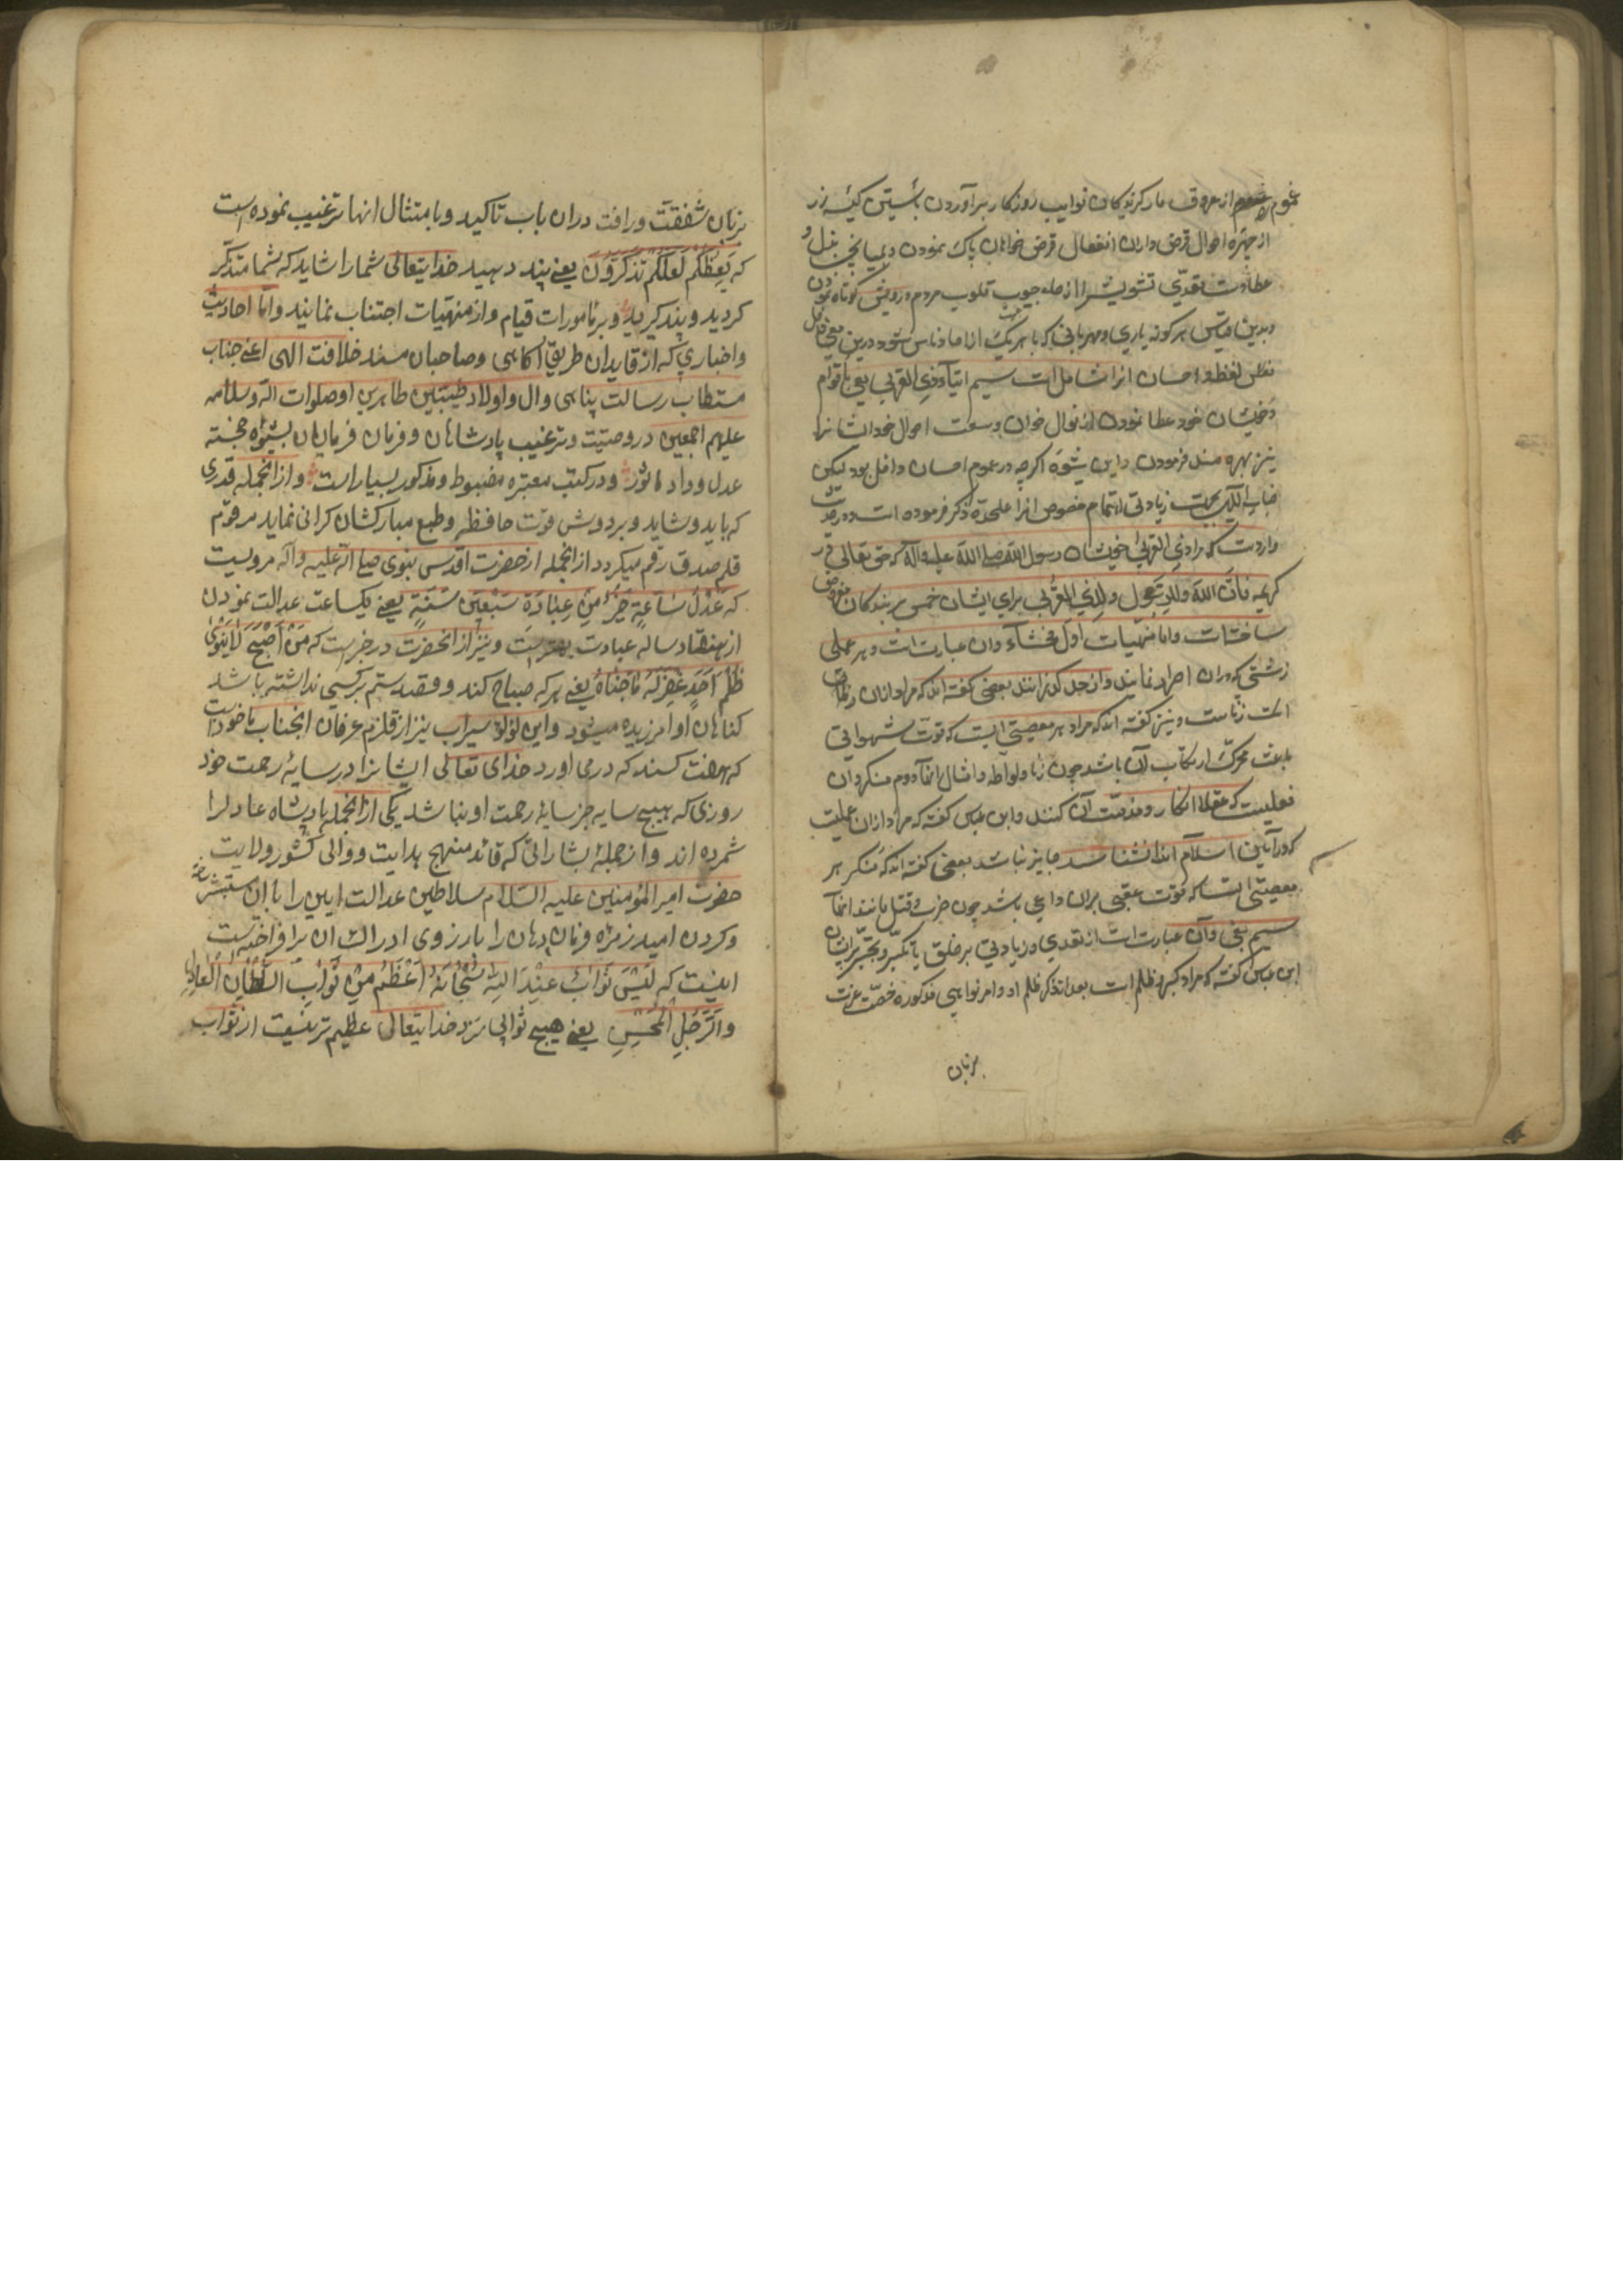 غموم از عروق مار کزیدگان نوایب روزگار برآوردن بشستن کینه زر
از چهره احوال قرض داران انفعال قرض خواهان پاک نمودن و
تشویش را از جیوب قلوب مردم درویش کوتاه نمودن
و بدین قیاس هرکونه یاری و مهربانی که با هر یک از احاد ناس شود درین معنی داخل
لفظ احسان انرا شاملست سیم ایتآء ذی القربی یعنی باقوام
و خویشان خود عطا نمودن از نوال خوان وسعت احوال خود ایشانرا
نیز بهره مند فرمودن و این شیوه اگرچه در عموم احسان داخل بود لیکن
جهت زیادتی اهتمام مخصوص انرا علیحده ذکر فرموده است و در حدیث
واردست که مراد ذی القربی خویشان رسول الله صلی الله علیه وآله که حق تعالی در
کریمه فان لله وللرسول ولذی القربی برای ایشان خمس بر بندگان مفروض
ساخته است واما منهیات اول فحشاء وان عبارت است و هر عملی
زشتی که دران اصرار نمایند و از حد گذرانند بعضی گفته اند که مراد ازان
زناست و نیز گفته اند که مراد هر معصیتی است که قوت شهوانی
باعث و محرک ارتکاب آن باشد چون زنا و لواطه و امثال انها دوم منکر و ان
فعلیست که عقلا انکار و مذمت آن کنند و ابن عباس گفته که مراد ازان عملیست
که در آئین اسلام انرا نشناسند و جایز نباشد بعضی گفته اند که منکر هر
معصیتی است که قوت غضبی بران داعی باشد چون ضرب و قتل و مانند انها
سیم بغی و آن عبارت است از تعدی و زیادتی بر خلق یا تکبر و تجبر بر ایشان
ابن عباس گفته که مراد کبر و ظلم است بعد از ذکر اوامر و نواهی مذکوره حضرت عزت
بزبان
بزبان شفقت ورافت دران باب تاکید وبامتثال انها ترغیب نموده است
که یَعِظُکُم لَعَلَّکُم تَذَکَّرُونَ یعنی پند دهید خدایتعالی شما را شاید که شما متذکر
کردید و پند کیرید و بر مامورات قیام و از منهیات اجتناب نمایند واما احادیث
واخباری که از قایدان طریق اکاهی وصاحبان مسند خلافت الهی اعنی جناب
مستطاب رسالت پناهی وال واولاد طیبین طاهرین او صلوات الله وسلامه
علیهم اجمعین در وصیت و ترغیب پادشاهان وفرمان فرمایان بشیوه خجسته
عدل وداد ماثور ودر کتب معتبره مضبوط ومذکور بسیار است واز انجمله قدری
که باید وشاید وبر دوش قوت حافظه وطبع مبارکشان کرانی ننماید مرقوم
قلم صدق رقم میکردد از انجمله از حضرت اقدس نبوی صلی الله علیه واله مرویست
که عَدْلُ سَاعَةٍ خَیرٌ مِن عِبَادَةِ سَبْعِینَ سَنَةٍ یعنی یکساعت عدالت نمودن
از هفتاد ساله عبادت بهترست و نیز از انحضرت در خبرست که مَن اَصْبَحَ لَایَنْوِی
ظُلْمَ اَحَدٍ غُفِرَ لَهُ مَاجَنَاهُ یعنی هر که صباح کند وقصد ستم بر کسی نداشته باشد
کناهان او امرزیده میشود واین لؤلؤ سیراب نیز از قلزم عرفان انجناب ماخوذاست
که هفت کسند که درمی اورد خدای تعالی ایشانرا در سایۀ رحمت خود
روزی که هیچ سایه جز سایۀ رحمت او نباشد یکی از انجمله پادشاه عادلرا
شمرده اند واز جملۀ بشاراتی که قائد منهج هدایت ووالی کشور ولایت
حضرت امیرالمؤمنین علیه السلام سلاطین عدالت ایین را بان مستبشر ساخته
وکردن امید زمره فرمان دهان را بارزوی ادراک ان برافراخته است
اینست که لَیْسَ ثَوَابٌ عِنْدَ اللهِ سُبْحَانَهُ اَعْظَمُ مِن ثَوَابِ السُّلطَانِ العَادِلِ
والرَّجُلِ المُحْسِنِ یعنی هیچ ثوابی نزد خدایتعالی عظیم تر نیست از ثواب